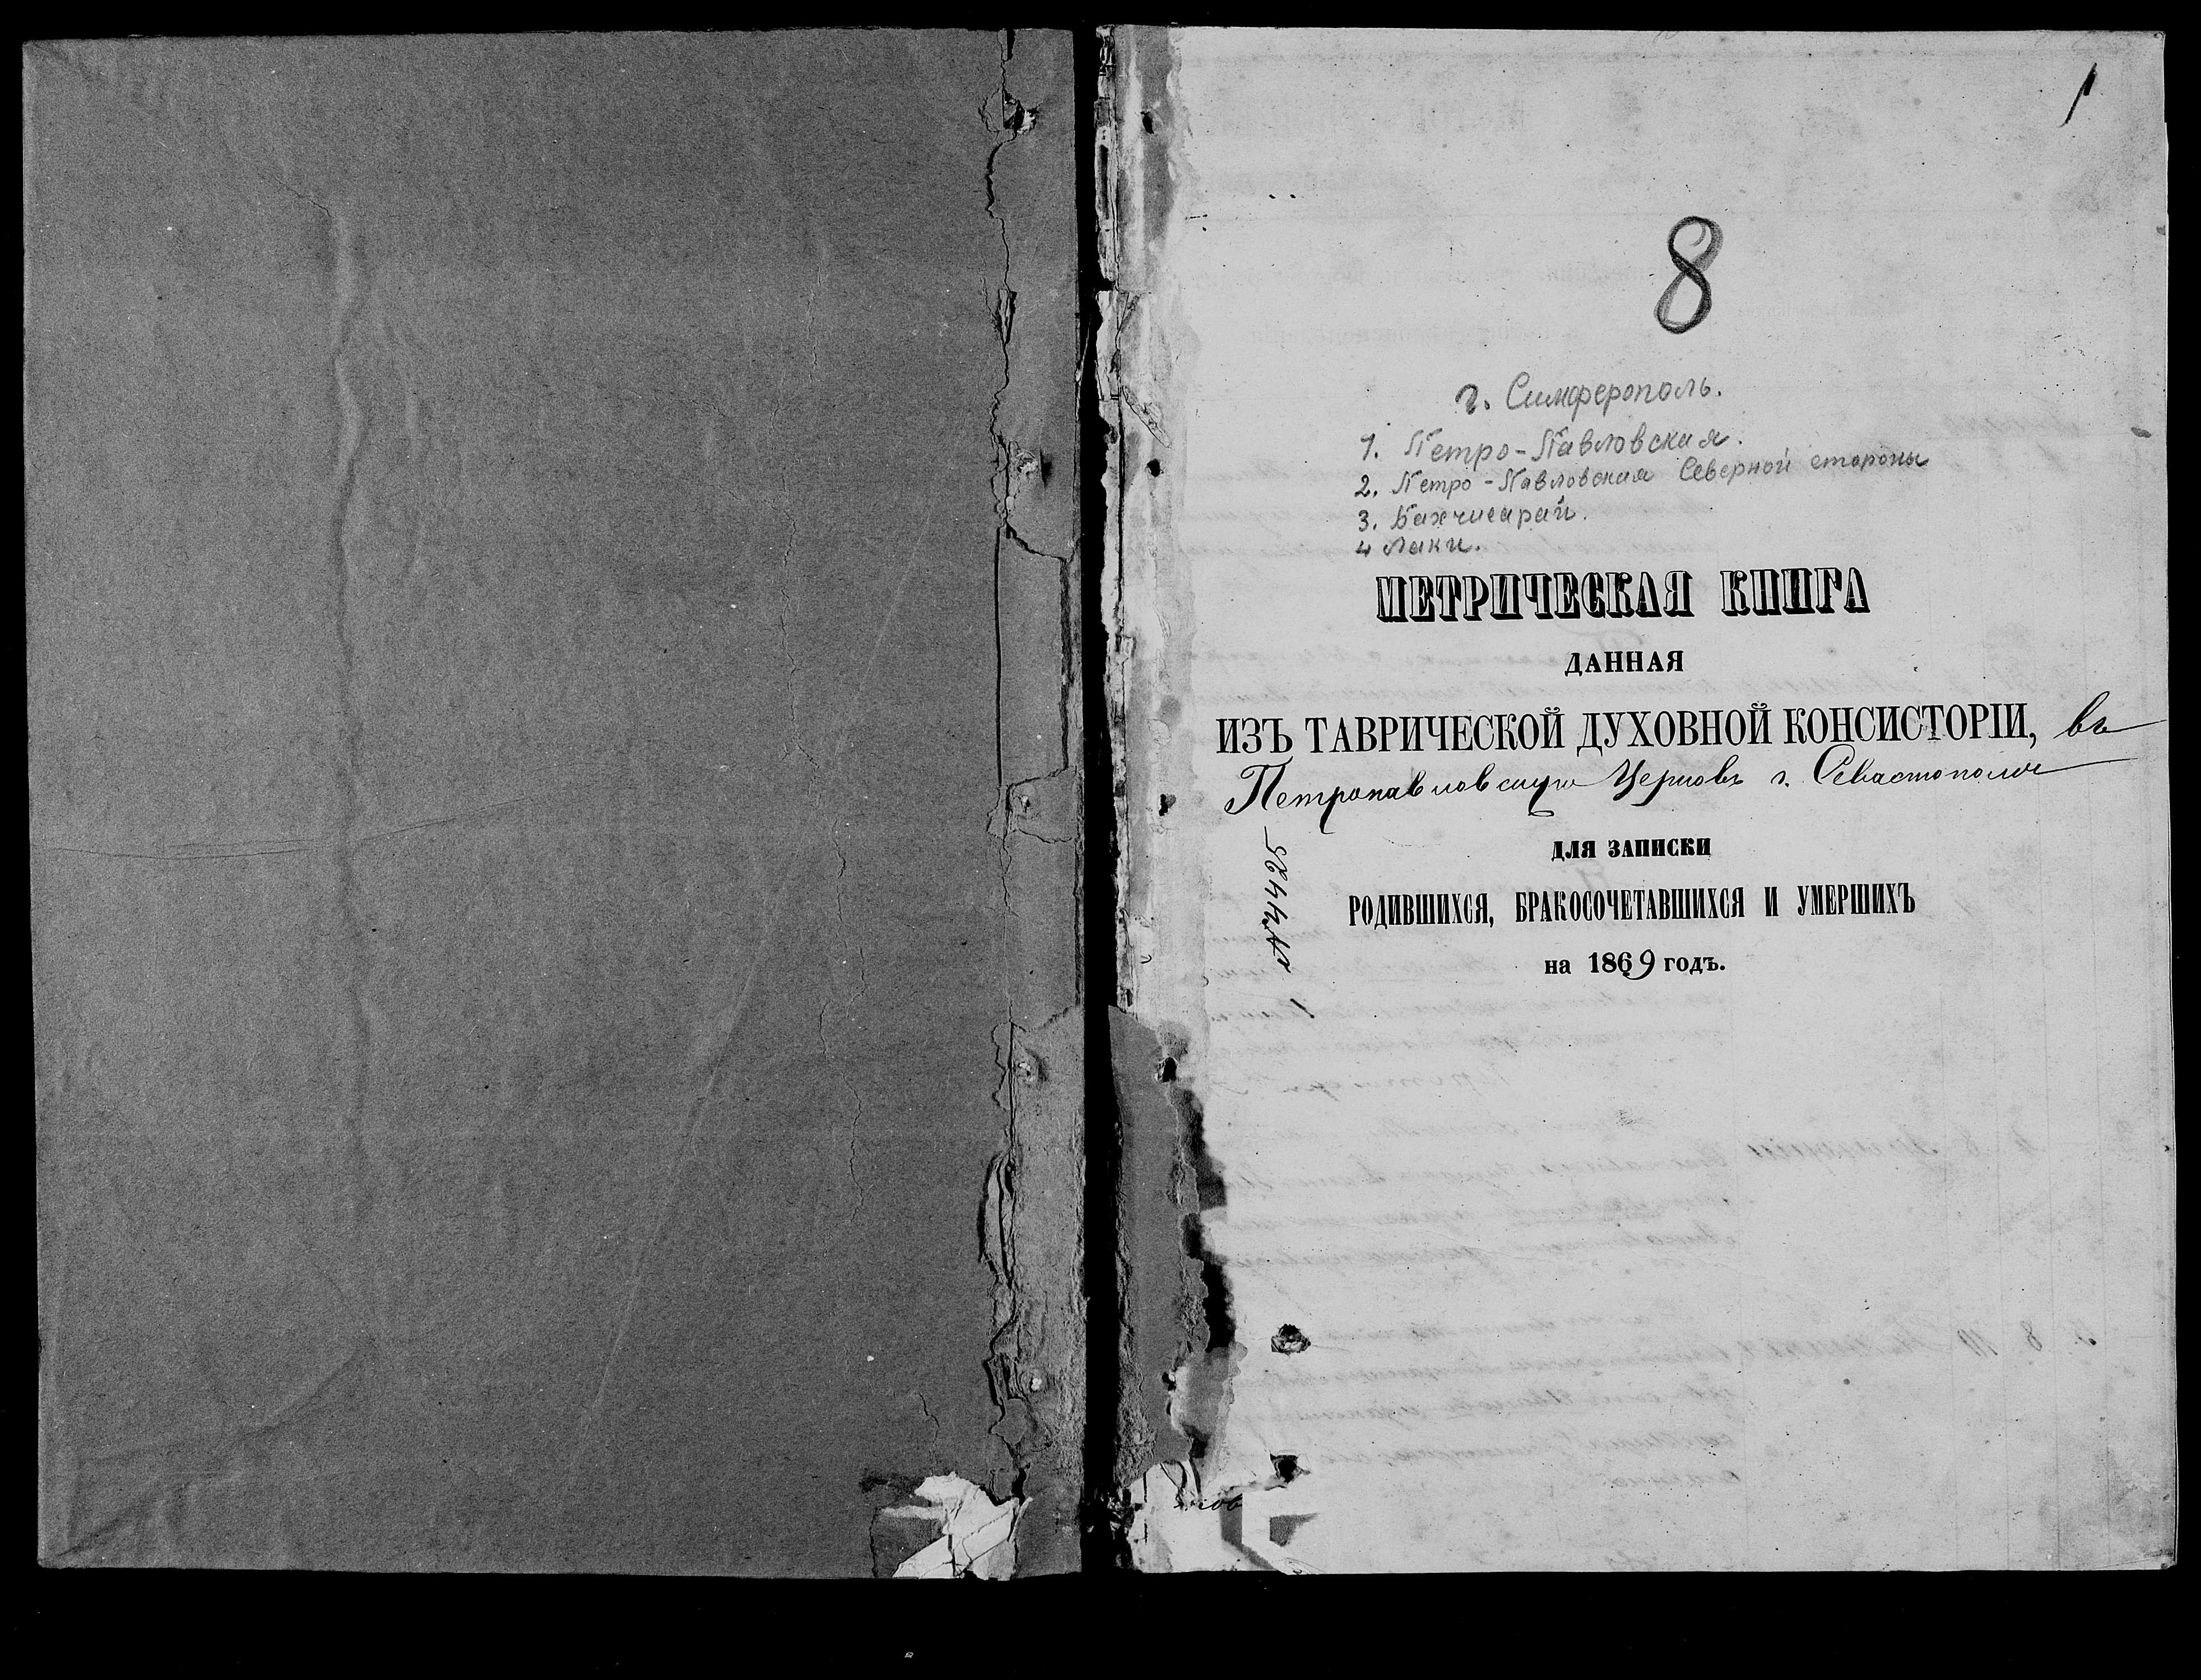 1
8
г. Симферополь.
1. Петро-Павловская.
2. Петро-Павловская Северной стороны
3. Бахчисарай.
4 Лаки.
МЕТРИЧЕСКАЯ КНИГА
ДАННАЯ
ИЗЪ ТАВРИЧЕСКОЙ ДУХОВНОЙ КОНСИСТОРІИ, въ
Петропавловскую Церковь г. Севастополя
ДЛЯ ЗАПИСКИ
РОДИВШИХСЯ, БРАКОСОЧЕТАВШИХСЯ И УМЕРШИХЪ
на 1869 годъ.